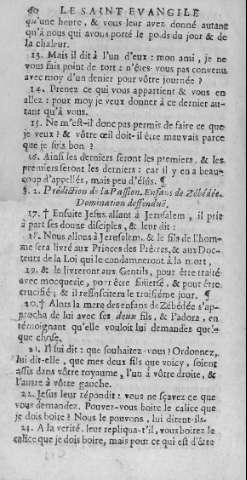 60 LE SAINT EVANGILE
qu'une heure, & vous leur avez donné autant
qu'à nous qui avons porté le poids du jour & de
la chaleur.
13. Mais il dit à l'un d'eux : mon ami, je ne
vous fais point de tort : n'êtes-vous pas convenu
avec moy d'un denier pour vôtre journée ?
14. Prenez ce qui vous appartient & vous en
allez : pour moy je veux donner à ce dernier au-
tant qu'à vous.
15. Ne m'est-il donc pas permis de faire ce que
je veux ? & vôtre œil doit-il être mauvais parce
que je suis bon ?
16. Ainsi les derniers seront les premiers, & les
premiers seront les derniers : car il y en a beau-
coup d'appellés, mais peu d'élûs. ¶
§. 2. Prédiction de la Passion. Enfans de Zébédée.
Domination deffenduë.
17. † Ensuite Jesus allant à Jerusalem, il prit
à part ses douze disciples, & leur dit :
18. Nous allons à Jerusalem, & le fils de l'hom-
me sera livré aux Princes des Prêtres, & aux Doc-
teurs de la Loi qui le condamneront à la mort,
19. & le livreront aux Gentils, pour être traité
avec mocquerie, pour être foüetté, & pour être
crucifié; & il ressuscitera le troisiéme jour. ¶
20. † Alors la mere des enfans de Zébédée s'ap-
procha de lui avec ses deux fils, & l'adora, en
témoignant qu'elle vouloit lui demander quel-
que chose.
21. Il lui dit : que souhaitez-vous ? Ordonnez,
lui dit-elle, que mes deux fils que voicy, soient
assis dans vôtre royaume, l'un à vôtre droite, &
l'autre à vôtre gauche.
22. Jesus leur répondit : vous ne sçavez ce que
vous demandez. Pouvez-vous boire le calice que
je dois boire ? Nous le pouvons, lui dirent-ils.
23. A la verité, leur repliqua-t'il, vous boirez le
calice que je dois boire, mais pour ce qui est d'être